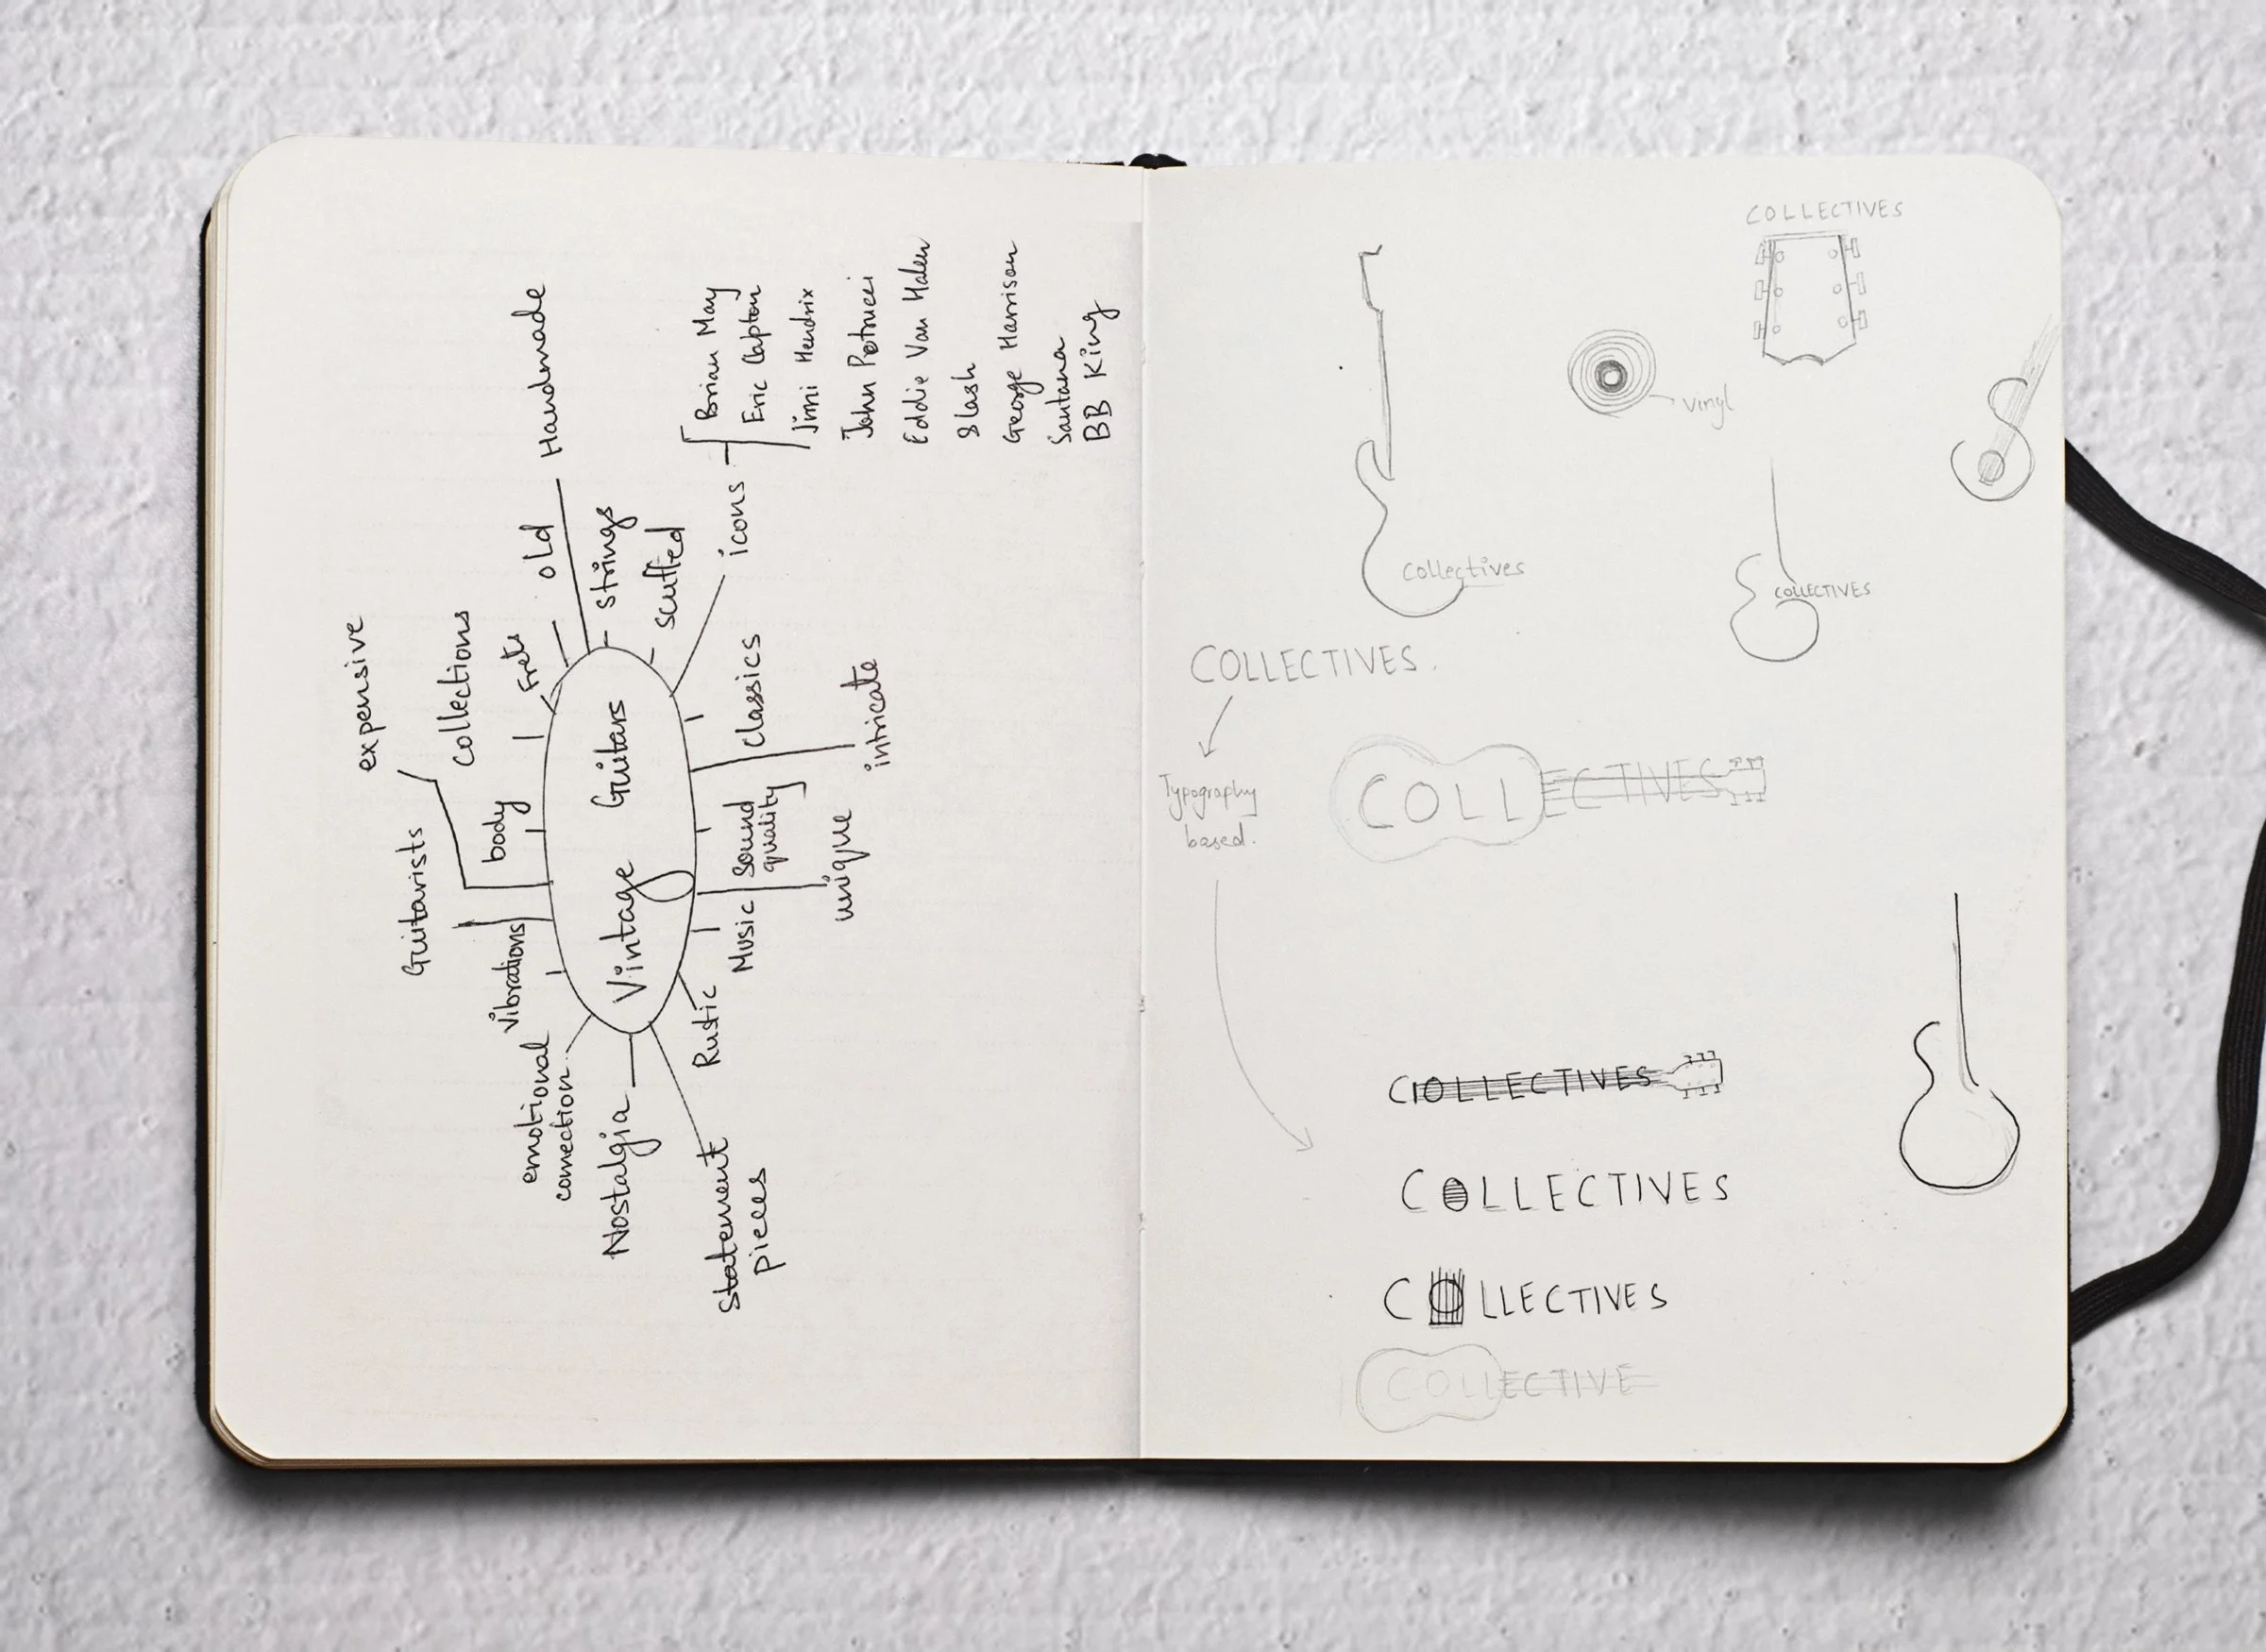 expensive
Guitarists
Collections
emotional
connection
Vibrations
body
Frets
old
Handmade
Nostalgia
Vintage Guitars
strings
scuffed
Statement
pieces
Rustic
Music
Sound
quality
Classics
icons
unique
intricate
Brian May
Eric Clapton
Jimi Hendrix
John Petrucci
Eddie Van Halen
Slash
George Harrison
Santana
BB King
COLLECTIVES
Vinyl
Collectives
COLLECTIVES
COLLECTIVES.
Typography
based.
COLLECTIVES
COLLECTIVES
COLLECTIVES
COLLECTIVES
COLLECTIVE